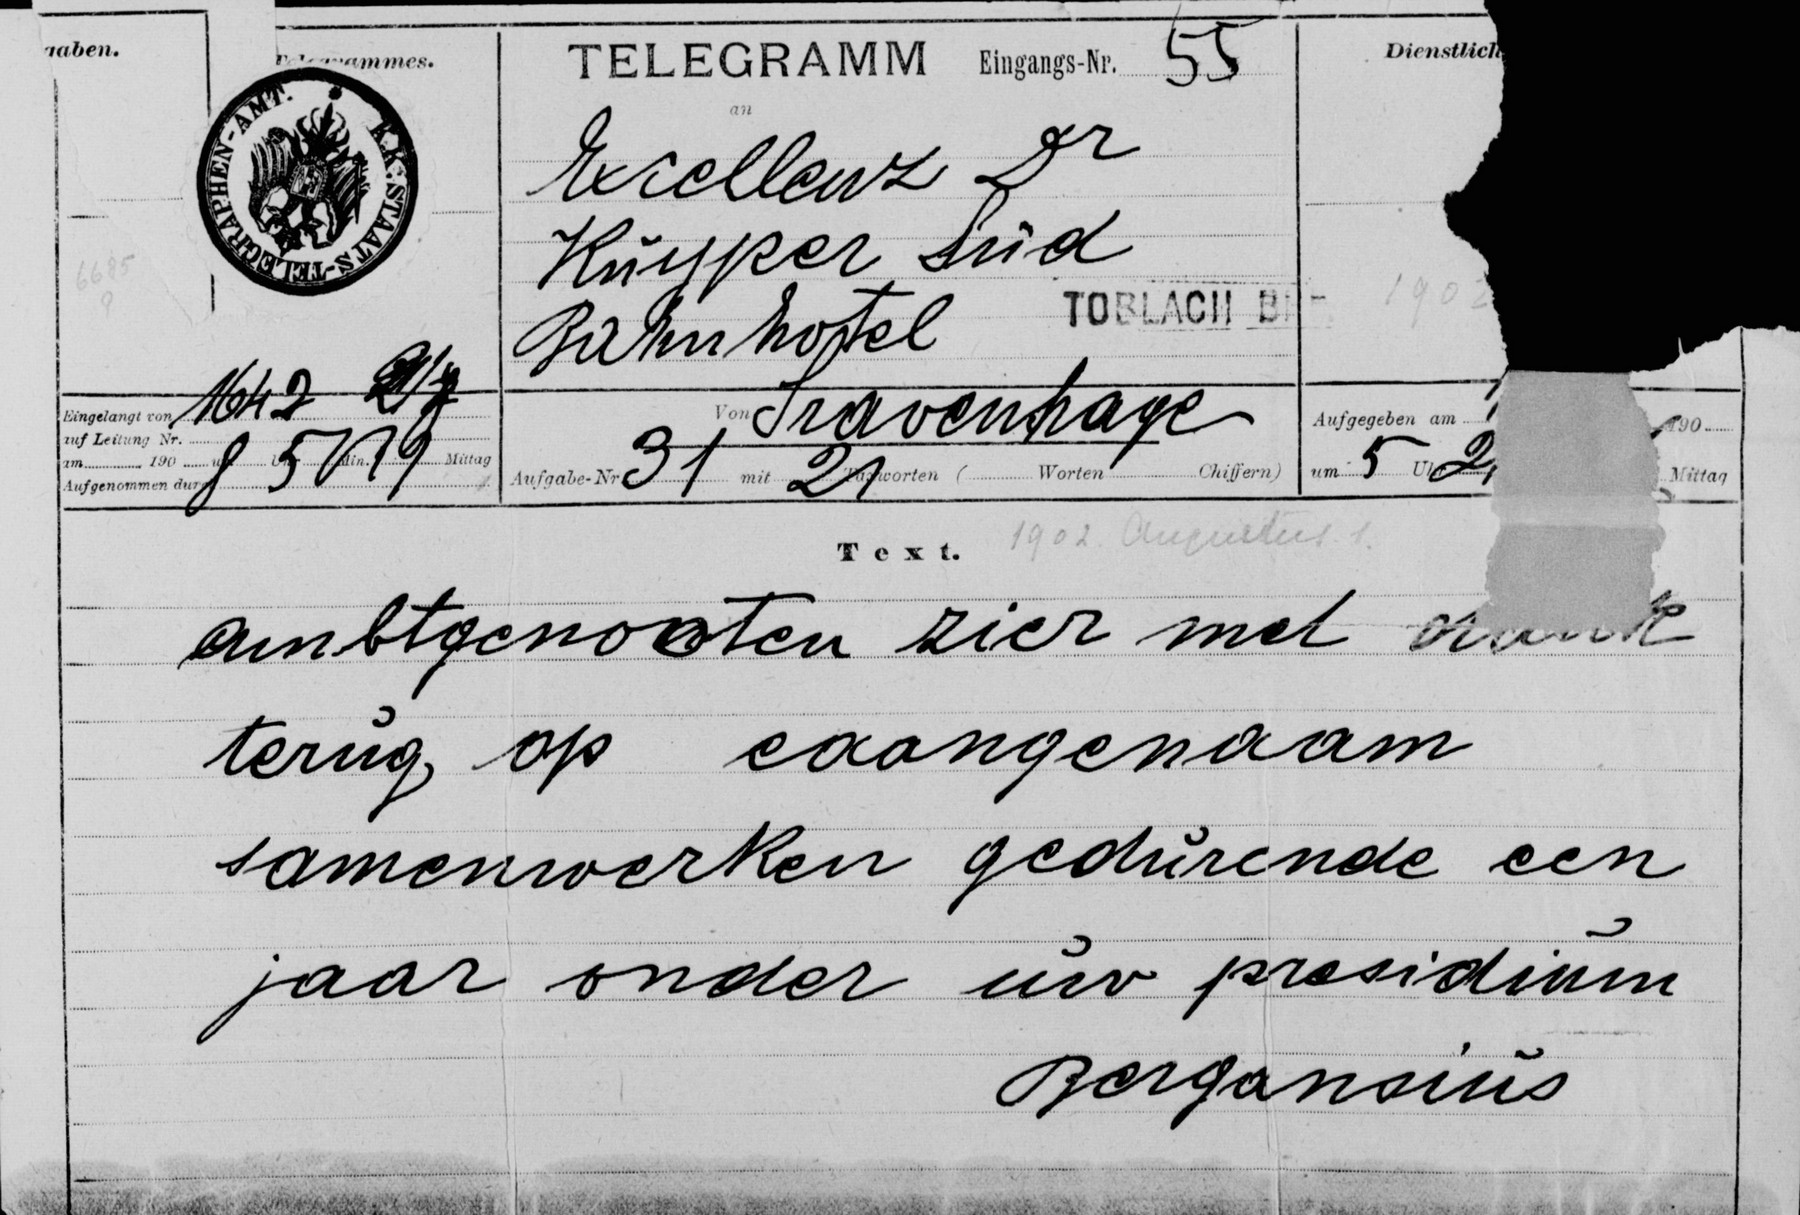 gaben.
Telegrammes.
TELEGRAMM Eingangs-Nr. 55
Dienstlich
an
K.K. STAATS-TELEGRAPHEN-AMT.
Excellenz Dr
Kuyper Süd
Bahnhotel
TOBLACH
6685
1902
Eingelangt von 1642
auf Leitung Nr.
am 190 Uhr 5 Min. 19 Mittag
Aufgenommen durch
Von Gravenhage
Aufgabe-Nr 31 mit 21 Taxworten ( Worten Chiffern)
Aufgegeben am 190
um 5 Uhr 2 Mittag
Text.
1902. Augustus 1.
ambtgenooten zier met
terug op eaangenaam
samenwerken gedurende een
jaar onder uw presidium
Bergansius